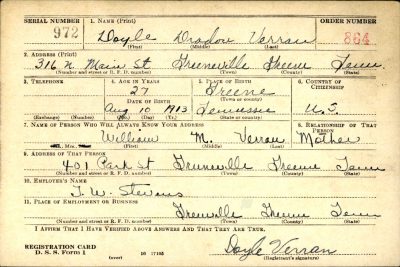 SERIAL NUMBER 1. NAME (Print) ORDER NUMBER
972 Doyle Dradow Verran 864
(First) (Middle) (Last)
2. ADDRESS (Print)
316 N. Main St Greeneville Greene Tenn
(Number and street or R. F. D. number) (Town) (County) (State)
3. TELEPHONE 4. AGE IN YEARS 5. PLACE OF BIRTH 6. COUNTRY OF CITIZENSHIP
27 Greene
DATE OF BIRTH (Town or county)
Aug 10 1913 Tennessee U.S.
(Exchange) (Number) (Mo.) (Day) (Yr.) (State or country)
7. NAME OF PERSON WHO WILL ALWAYS KNOW YOUR ADDRESS 8. RELATIONSHIP OF THAT PERSON
William M. Verran Mother
Mrs. (First) (Middle) (Last)
9. ADDRESS OF THAT PERSON
401 Park St Greeneville Greene Tenn
(Number and street or R. F. D. number) (Town) (County) (State)
10. EMPLOYER'S NAME
J. W. Stevens
11. PLACE OF EMPLOYMENT OR BUSINESS
Greeneville Greene Tenn
(Number and street or R. F. D. number) (Town) (County) (State)
I AFFIRM THAT I HAVE VERIFIED ABOVE ANSWERS AND THAT THEY ARE TRUE.
REGISTRATION CARD
D. S. S. Form 1 (over) 16—17105 Doyle Verran
(Registrant's signature)